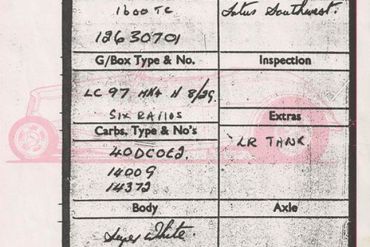 1600 TC
Lotus Southwest.
12630701
G/Box Type & No.
Inspection
LC 97 HN4 N 8/29.
SIX RATIOS
Extras
Carbs, Type & No's
40DCOE2.
LR TANK
14009
14372
Body
Axle
White.